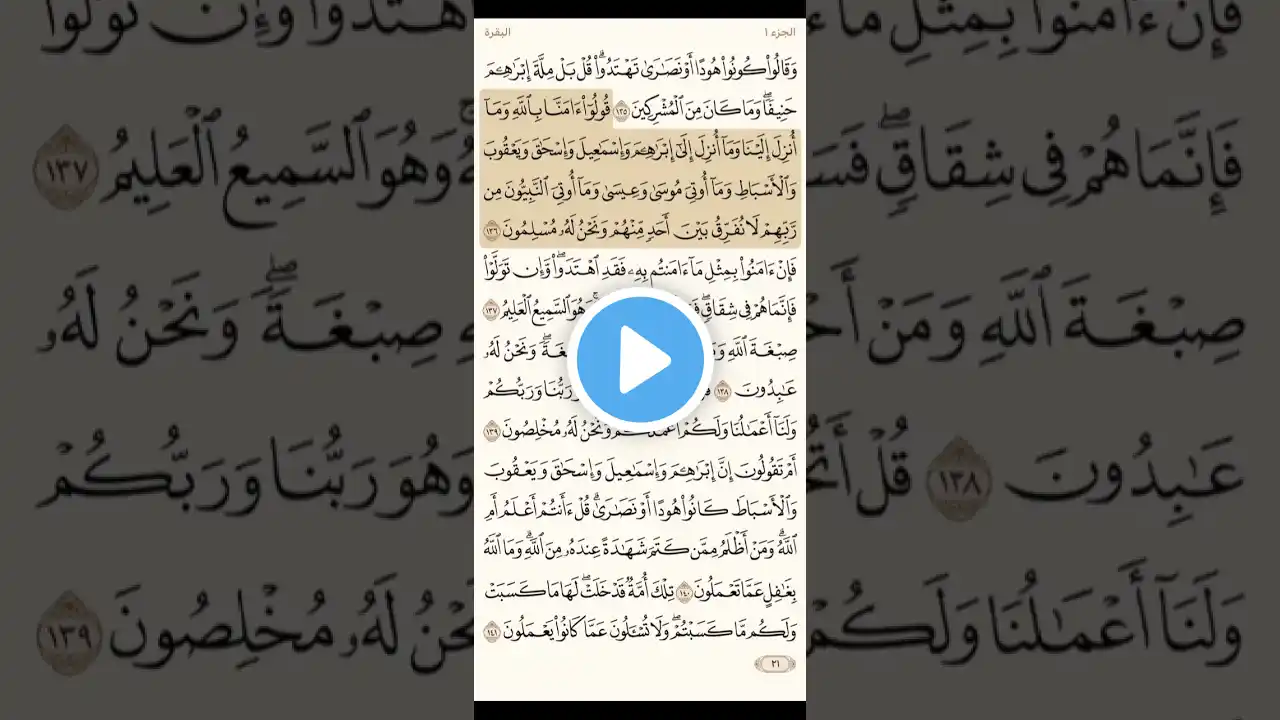 الجزء ١
البقرة
وَقَالُوا۟ كُونُوا۟ هُودًا أَوْ نَصَـٰرَىٰ تَهْتَدُوا۟ ۗ قُلْ بَلْ مِلَّةَ إِبْرَٰهِـۧمَ
حَنِيفًا ۖ وَمَا كَانَ مِنَ ٱلْمُشْرِكِينَ ١٣٥ قُولُوٓا۟ ءَامَنَّا بِٱللَّهِ وَمَآ
أُنزِلَ إِلَيْنَا وَمَآ أُنزِلَ إِلَىٰٓ إِبْرَٰهِـۧمَ وَإِسْمَـٰعِيلَ وَإِسْحَـٰقَ وَيَعْقُوبَ
وَٱلْأَسْبَاطِ وَمَآ أُوتِىَ مُوسَىٰ وَعِيسَىٰ وَمَآ أُوتِىَ ٱلنَّبِيُّونَ مِن
رَّبِّهِمْ لَا نُفَرِّقُ بَيْنَ أَحَدٍ مِّنْهُمْ وَنَحْنُ لَهُۥ مُسْلِمُونَ ١٣٦
فَإِنْ ءَامَنُوا۟ بِمِثْلِ مَآ ءَامَنتُم بِهِۦ فَقَدِ ٱهْتَدَوا۟ ۖ وَّإِن تَوَلَّوْا۟
فَإِنَّمَا هُمْ فِى شِقَاقٍ ۖ وَهُوَ ٱلسَّمِيعُ ٱلْعَلِيمُ ١٣٧
صِبْغَةَ ٱللَّهِ صِبْغَةً ۖ وَنَحْنُ لَهُۥ
عَـٰبِدُونَ ١٣٨ وَهُوَ رَبُّنَا وَرَبُّكُمْ
وَلَنَآ أَعْمَـٰلُنَا وَلَكُمْ أَعْمَـٰلُكُمْ وَنَحْنُ لَهُۥ مُخْلِصُونَ ١٣٩
أَمْ تَقُولُونَ إِنَّ إِبْرَٰهِـۧمَ وَإِسْمَـٰعِيلَ وَإِسْحَـٰقَ وَيَعْقُوبَ
وَٱلْأَسْبَاطَ كَانُوا۟ هُودًا أَوْ نَصَـٰرَىٰ ۗ قُلْ ءَأَنتُمْ أَعْلَمُ أَمِ
ٱللَّهُ ۗ وَمَنْ أَظْلَمُ مِمَّن كَتَمَ شَهَـٰدَةً عِندَهُۥ مِنَ ٱللَّهِ ۗ وَمَا ٱللَّهُ
بِغَـٰفِلٍ عَمَّا تَعْمَلُونَ ١٤٠ تِلْكَ أُمَّةٌ قَدْ خَلَتْ ۖ لَهَا مَا كَسَبَتْ
وَلَكُم مَّا كَسَبْتُمْ ۖ وَلَا تُسْـَٔلُونَ عَمَّا كَانُوا۟ يَعْمَلُونَ ١٤١
٢١